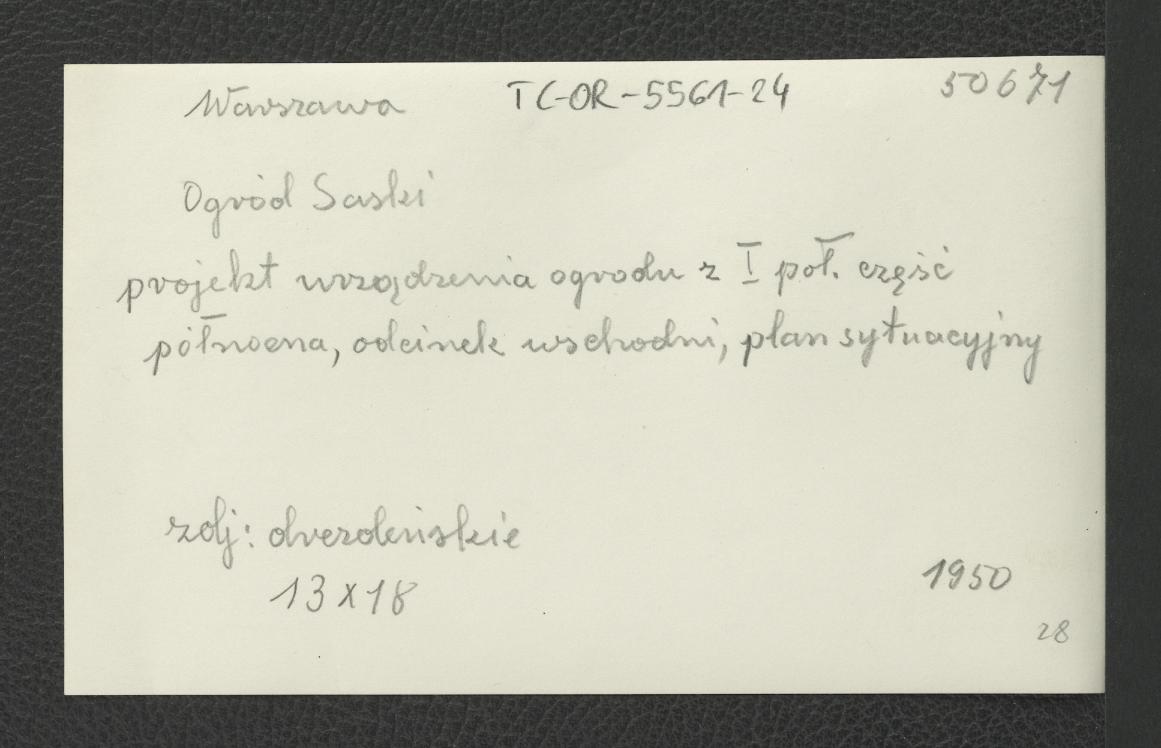 Warszawa TC-OR-5561-24 50671
Ogród Saski
projekt urządzenia ogrodu z I poł. część
północna, odcinek wschodni, plan sytuacyjny
zdj: drezdeńskie
13x18
1950
28